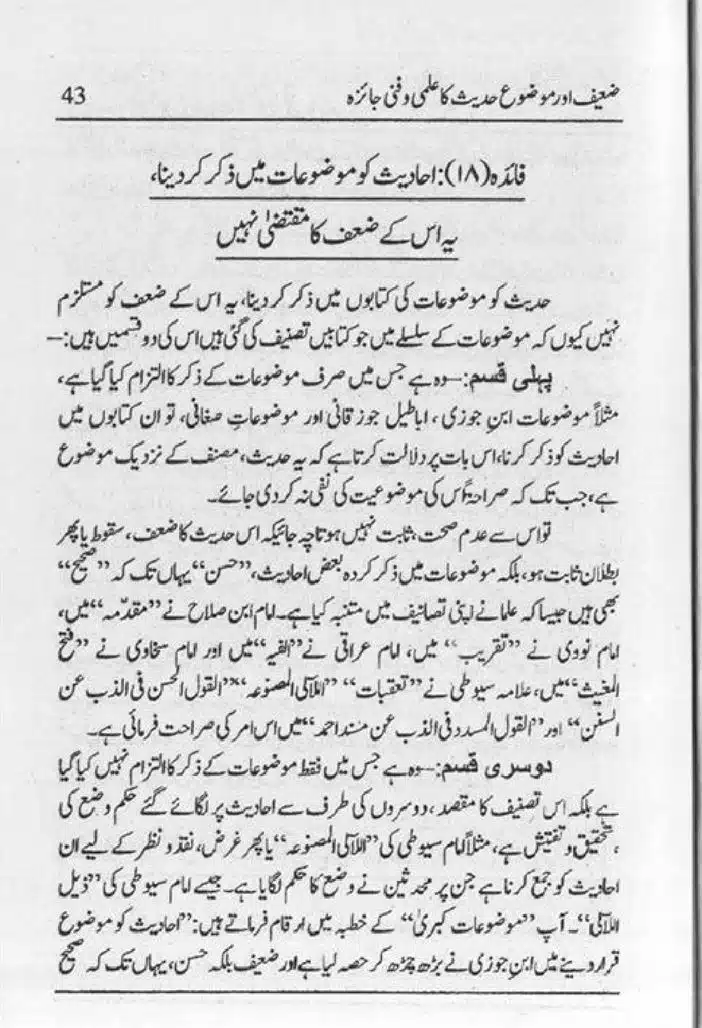 ضعیف اور موضوع حدیث کا علمی و فنی جائزہ 43
فائدہ (۱۸): احادیث کو موضوعات میں ذکر کر دینا،
یہ اس کے ضعف کا مقتضیٰ نہیں
حدیث کو موضوعات کی کتابوں میں ذکر کر دینا، یہ اس کے ضعف کو مستلزم
نہیں کیوں کہ موضوعات کے سلسلے میں جو کتابیں تصنیف کی گئی ہیں اس کی دو قسمیں ہیں:—
پہلی قسم:—وہ ہے جس میں صرف موضوعات کے ذکر کا التزام کیا گیا ہے،
مثلاً موضوعات ابنِ جوزی، اباطیل جوزقانی اور موضوعاتِ صغانی، تو ان کتابوں میں
احادیث کو ذکر کرنا، اس بات پر دلالت کرتا ہے کہ یہ حدیث، مصنف کے نزدیک موضوع
ہے، جب تک کہ صراحۃً اس کی موضوعیت کی نفی نہ کر دی جائے۔
تو اس سے عدم صحت، ثابت نہیں ہوتا چہ جائیکہ اس حدیث کا ضعف، سقوط یا پھر
بطلان ثابت ہو، بلکہ موضوعات میں ذکر کردہ بعض احادیث، ”حسن“ یہاں تک کہ ”صحیح“
بھی ہیں جیسا کہ علما نے اپنی تصانیف میں متنبہ کیا ہے۔ امام ابن صلاح نے ”مقدّمہ“ میں،
امام نووی نے ”تقریب“ میں، امام عراقی نے ”الفیہ“ میں اور امام سخاوی نے ”فتح
المغیث“ میں، علامہ سیوطی نے ”تعقبات“ ”اللآلی المصنوعہ“ ”القول الحسن فی الذب عن
السنن“ اور ”القول المسدد فی الذب عن مسند احمد“ میں اس امر کی صراحت فرمائی ہے۔
دوسری قسم:—وہ ہے جس میں فقط موضوعات کے ذکر کا التزام نہیں کیا گیا
ہے بلکہ اس تصنیف کا مقصد، دوسروں کی طرف سے احادیث پر لگائے گئے حکم وضع کی
، تحقیق و تفتیش ہے، مثلاً امام سیوطی کی ”اللآلی المصنوعہ“ یا پھر غرض، نقد و نظر کے لیے ان
احادیث کو جمع کرنا ہے جن پر محدثین نے وضع کا حکم لگایا ہے۔ جیسے امام سیوطی کی ”ذیل
اللآلی“۔ آپ ”موضوعات کبریٰ“ کے خطبہ میں ارقام فرماتے ہیں: ”احادیث کو موضوع
قرار دینے میں ابنِ جوزی نے بڑھ چڑھ کر حصہ لیا ہے اور ضعیف بلکہ حسن، یہاں تک کہ صحیح